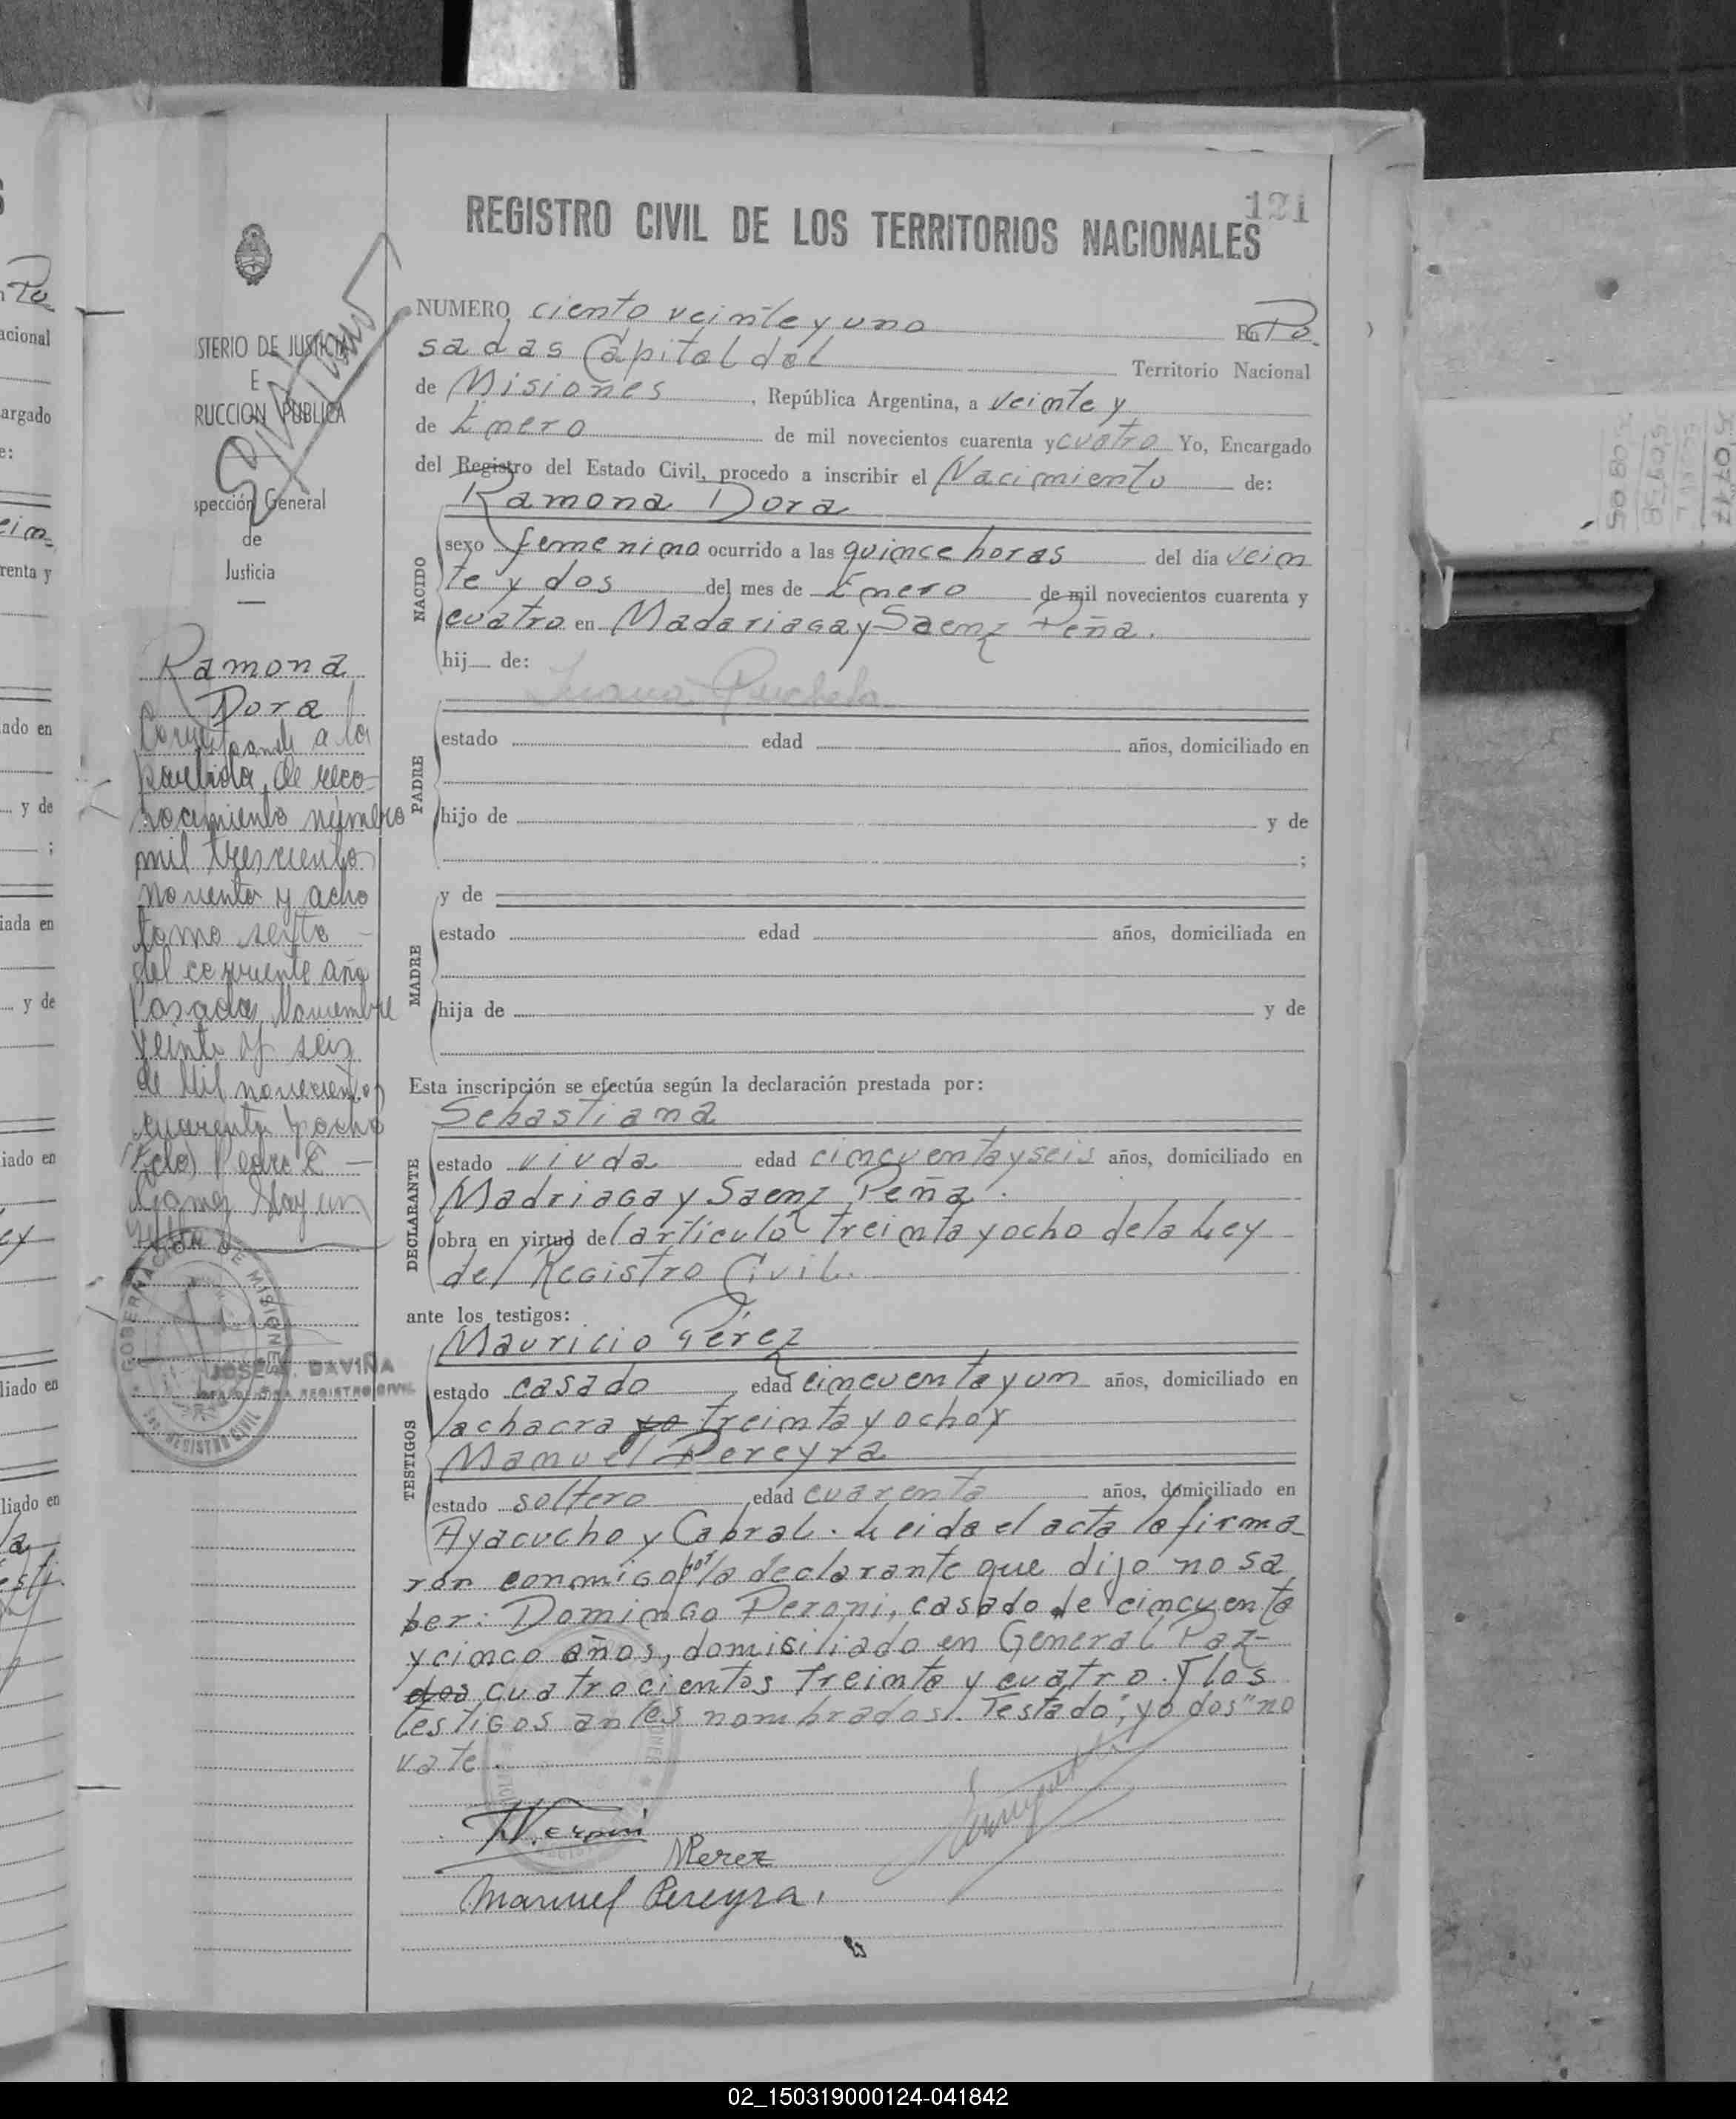 121
REGISTRO CIVIL DE LOS TERRITORIOS NACIONALES
NUMERO ciento veinte y uno En Po
sadas Capital del Territorio Nacional
de Misiones, República Argentina, a veinte y
de Enero de mil novecientos cuarenta y cuatro Yo, Encargado
del Registro del Estado Civil, procedo a inscribir el Nacimiento de:
Ramona Dora
NACIDO
sexo femenino ocurrido a las quince horas del día vein
te y dos del mes de Enero de mil novecientos cuarenta y
cuatro en Madariaga y Saenz Peña.
hij de:
Juana
PADRE
estado edad años, domiciliado en
hijo de y de
;
MADRE
y de
estado edad años, domiciliada en
hija de y de
Esta inscripción se efectúa según la declaración prestada por:
Sebastiana
DECLARANTE
estado viuda edad cincuenta y seis años, domiciliado en
Madriaga y Saenz Peña.
obra en virtud del artículo treinta y ocho de la Ley
del Registro Civil.
ante los testigos:
TESTIGOS
Mauricio Pérez
estado casado edad cincuenta y un años, domiciliado en
la chacra yo treinta y ocho y
Manuel Pereyra
estado soltero edad cuarenta años, domiciliado en
Ayacucho y Cabral. Leida el acta la firma
ron conmigo por la declarante que dijo no sa
ber: Domingo Peroni, casado de cincuenta
y cinco años, domisiliado en General Paz
dos cuatrocientos treinta y cuatro. Y los
testigos antes nombrados. Testado "yo dos" no
vale.
MPerez
Manuel Pereyra.
STERIO DE JUSTICIA
E
RUCCION PUBLICA
spección General
de
Justicia
Ramona
Dora
Corresponde a la
partida de reco-
nocimiento número
mil trescientos
noventa y ocho
tomo sexto
del corriente año
Posadas, Noviembre
veinte y seis
de Mil novecientos
cuarenta y ocho
Pedro E
Gomez
GOBERNACION DE MISIONES
REGISTRO CIVIL
JOSE DAVIÑA
REGISTRO CIVIL
02_150319000124-041842